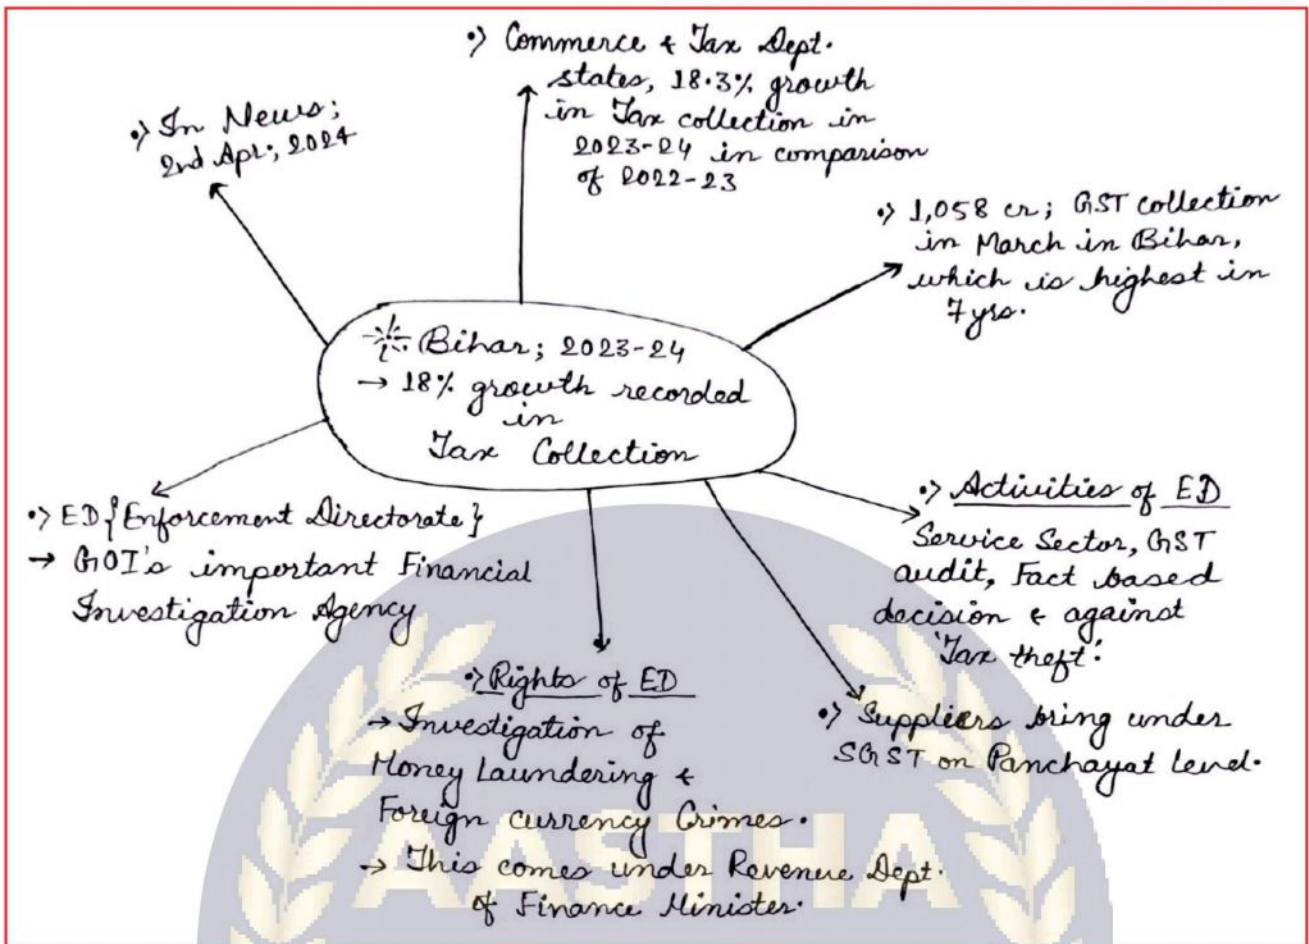 •) In News;
2nd Apr; 2024
•) Commerce & Tax Dept.
states, 18.3% growth
in Tax collection in
2023-24 in comparison
of 2022-23
•) 1,058 cr; GST collection
in March in Bihar,
which is highest in
7 yrs.
Bihar; 2023-24
→ 18% growth recorded
in
Tax Collection
•) ED {Enforcement Directorate}
→ GOI's important Financial
Investigation Agency
•) Rights of ED
→ Investigation of
Money Laundering &
Foreign currency Crimes.
→ This comes under Revenue Dept.
of Finance Minister.
•) Activities of ED
Service Sector, GST
audit, Fact based
decision & against
'Tax theft'.
•) Suppliers bring under
SGST on Panchayat level.
AASTHA